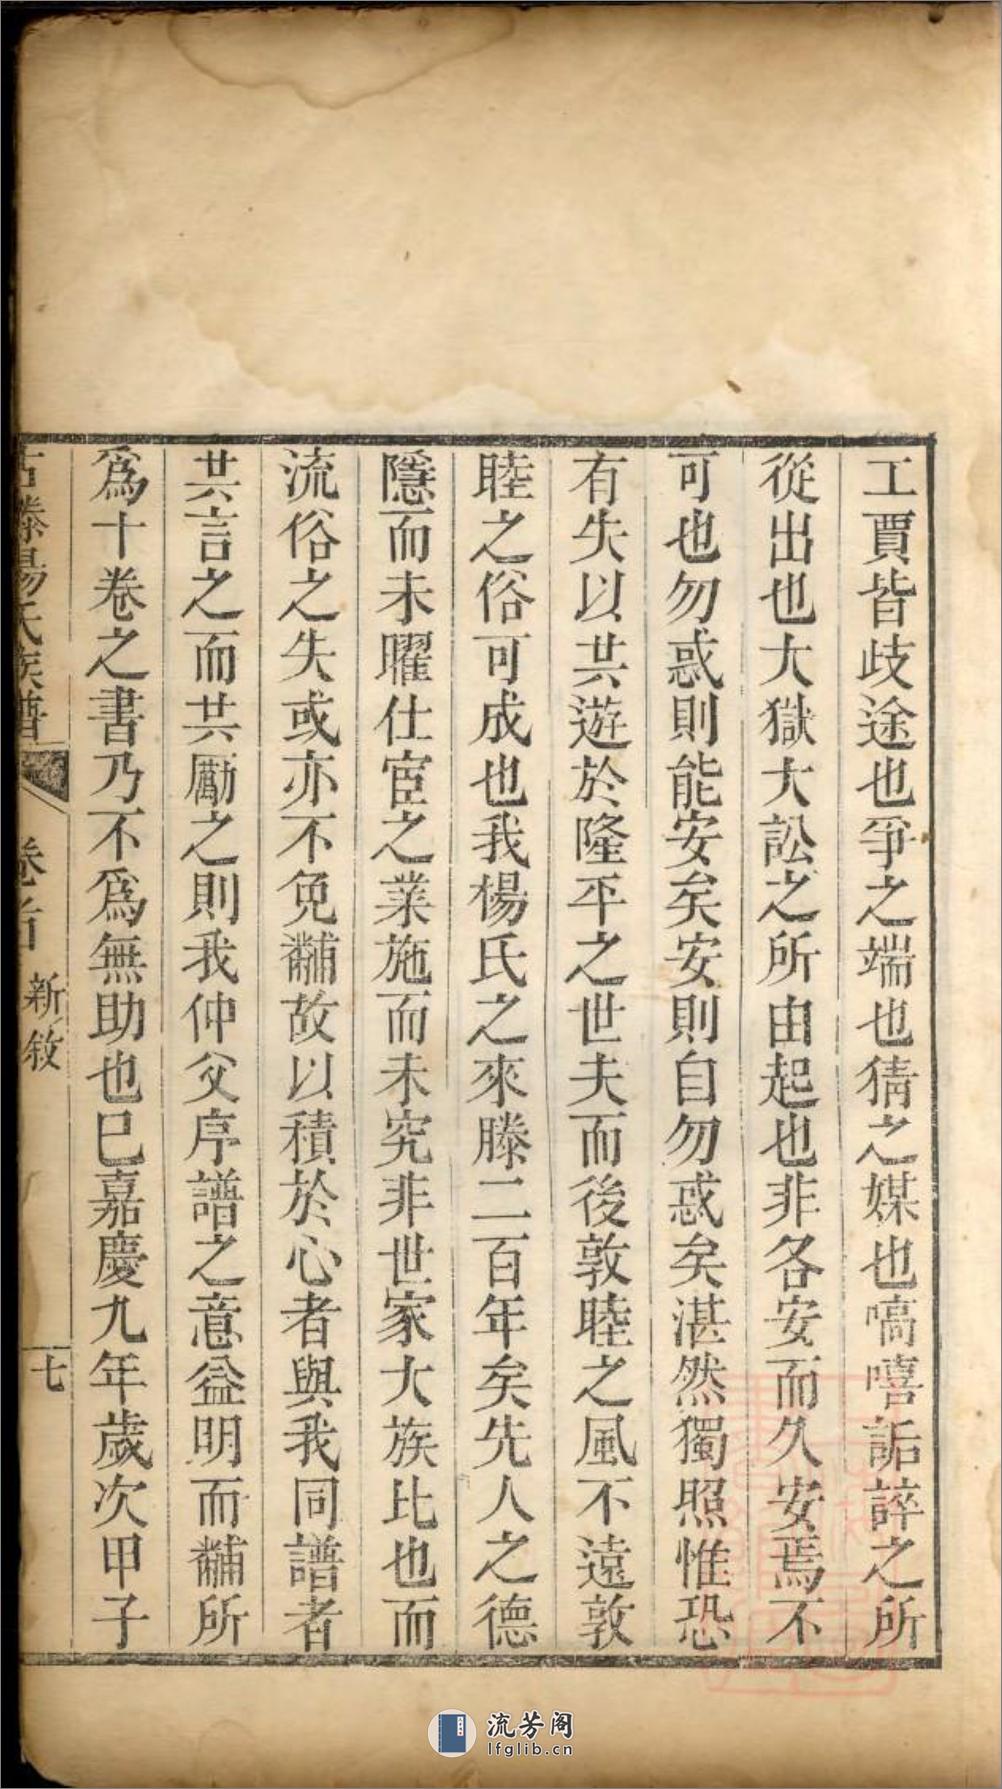 工賈皆歧途也爭之端也猜之媒也嗃嘻詬誶之所
從出也大獄大訟之所由起也非各安而久安焉不
可也勿惑則能安矣安則自勿惑矣湛然獨照惟恐
有失以共遊於隆平之世夫而後敦睦之風不遠敦
睦之俗可成也我楊氏之來滕二百年矣先人之德
隱而未曜仕宦之業施而未究非世家大族比也而
流俗之失或亦不免黼故以積於心者與我同譜者
共言之而共勵之則我仲父序譜之意益明而黼所
為十卷之書乃不為無助也已嘉慶九年歲次甲子
古滕楊氏族譜 卷首 新敘 七
流芳阁
lfglib.cn